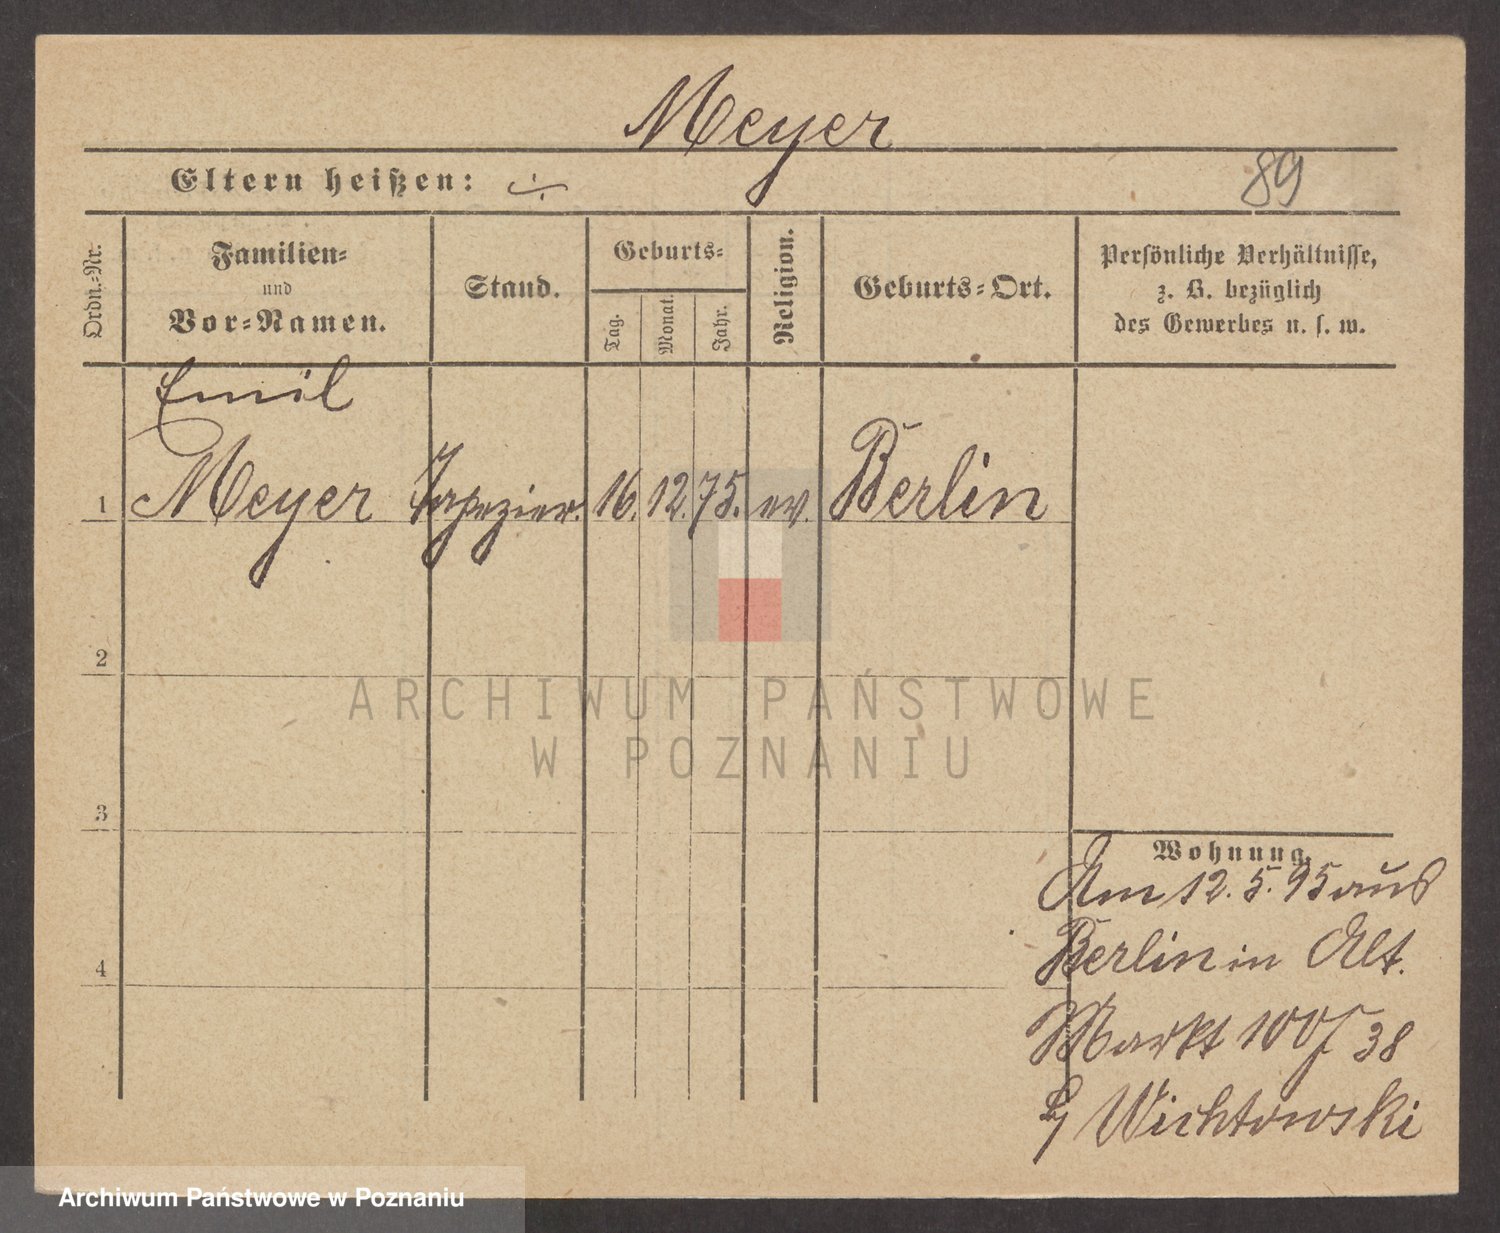 Meyer
Eltern heißen: ÷
89
Ordn.-Nr.
Familien-
und
Vor-Namen.
Stand.
Geburts-
Tag.
Monat.
Jahr.
Religion.
Geburts-Ort.
Persönliche Verhältnisse,
z. B. bezüglich
des Gewerbes u. s. w.
Emil
1 Meyer Tapezier. 16. 12. 75. ev. Berlin
2
ARCHIWUM PAŃSTWOWE
W POZNANIU
3
Wohnung.
Am 12. 5. 95 aus
Berlin in Alt.
4
Markt 100/ 38
b/ Wichtowski
Archiwum Państwowe w Poznaniu